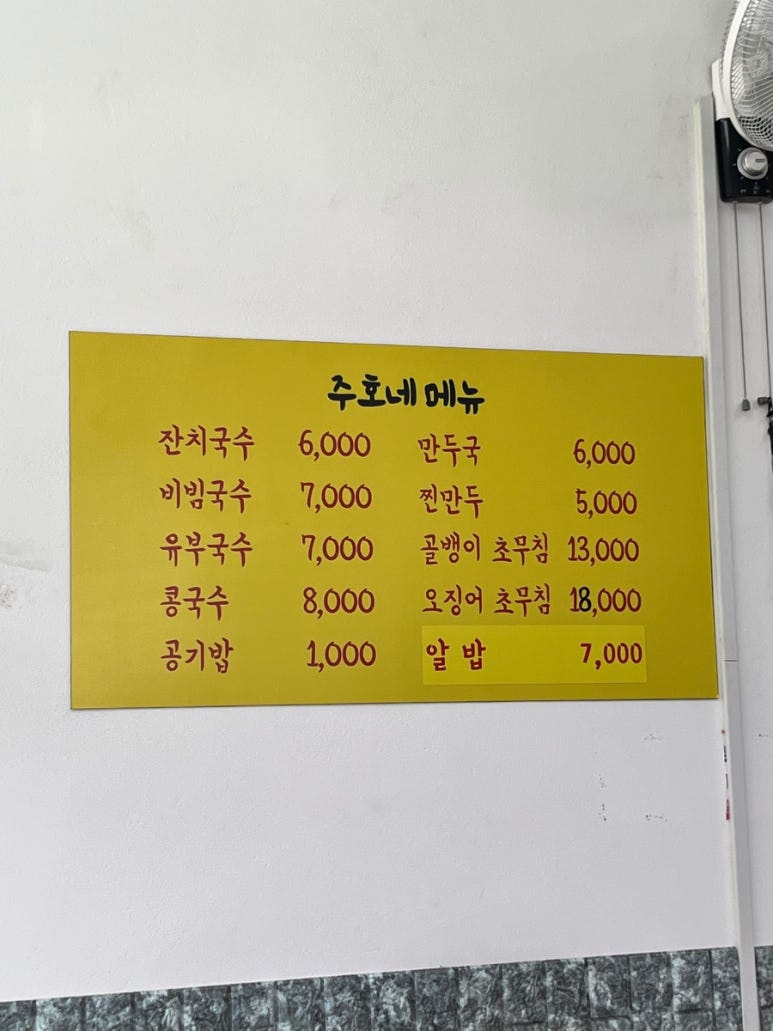 주호네 메뉴
잔치국수 6,000
비빔국수 7,000
유부국수 7,000
콩국수 8,000
공기밥 1,000
만두국 6,000
찐만두 5,000
골뱅이 초무침 13,000
오징어 초무침 18,000
알 밥 7,000